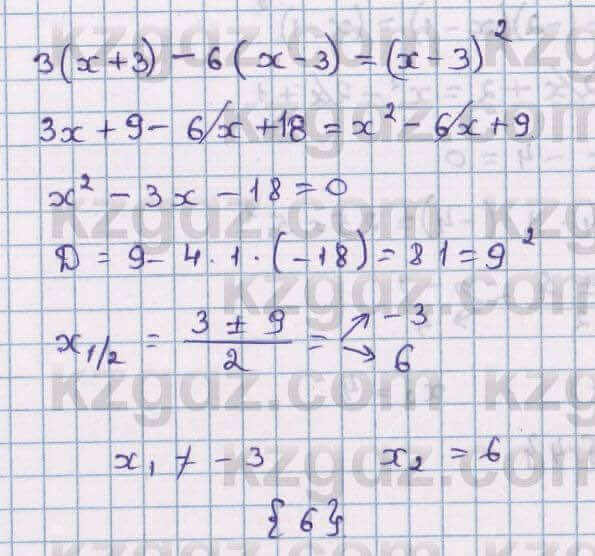 3(x+3) - 6(x-3) = (x-3)²
3x + 9 - 6x + 18 = x² - 6x + 9
x² - 3x - 18 = 0
D = 9 - 4 · 1 · (-18) = 81 = 9²
x₁/₂ = (3 ± 9)/2 = ↗ -3 ↘ 6
x₁ ≠ -3 x₂ = 6
{6}